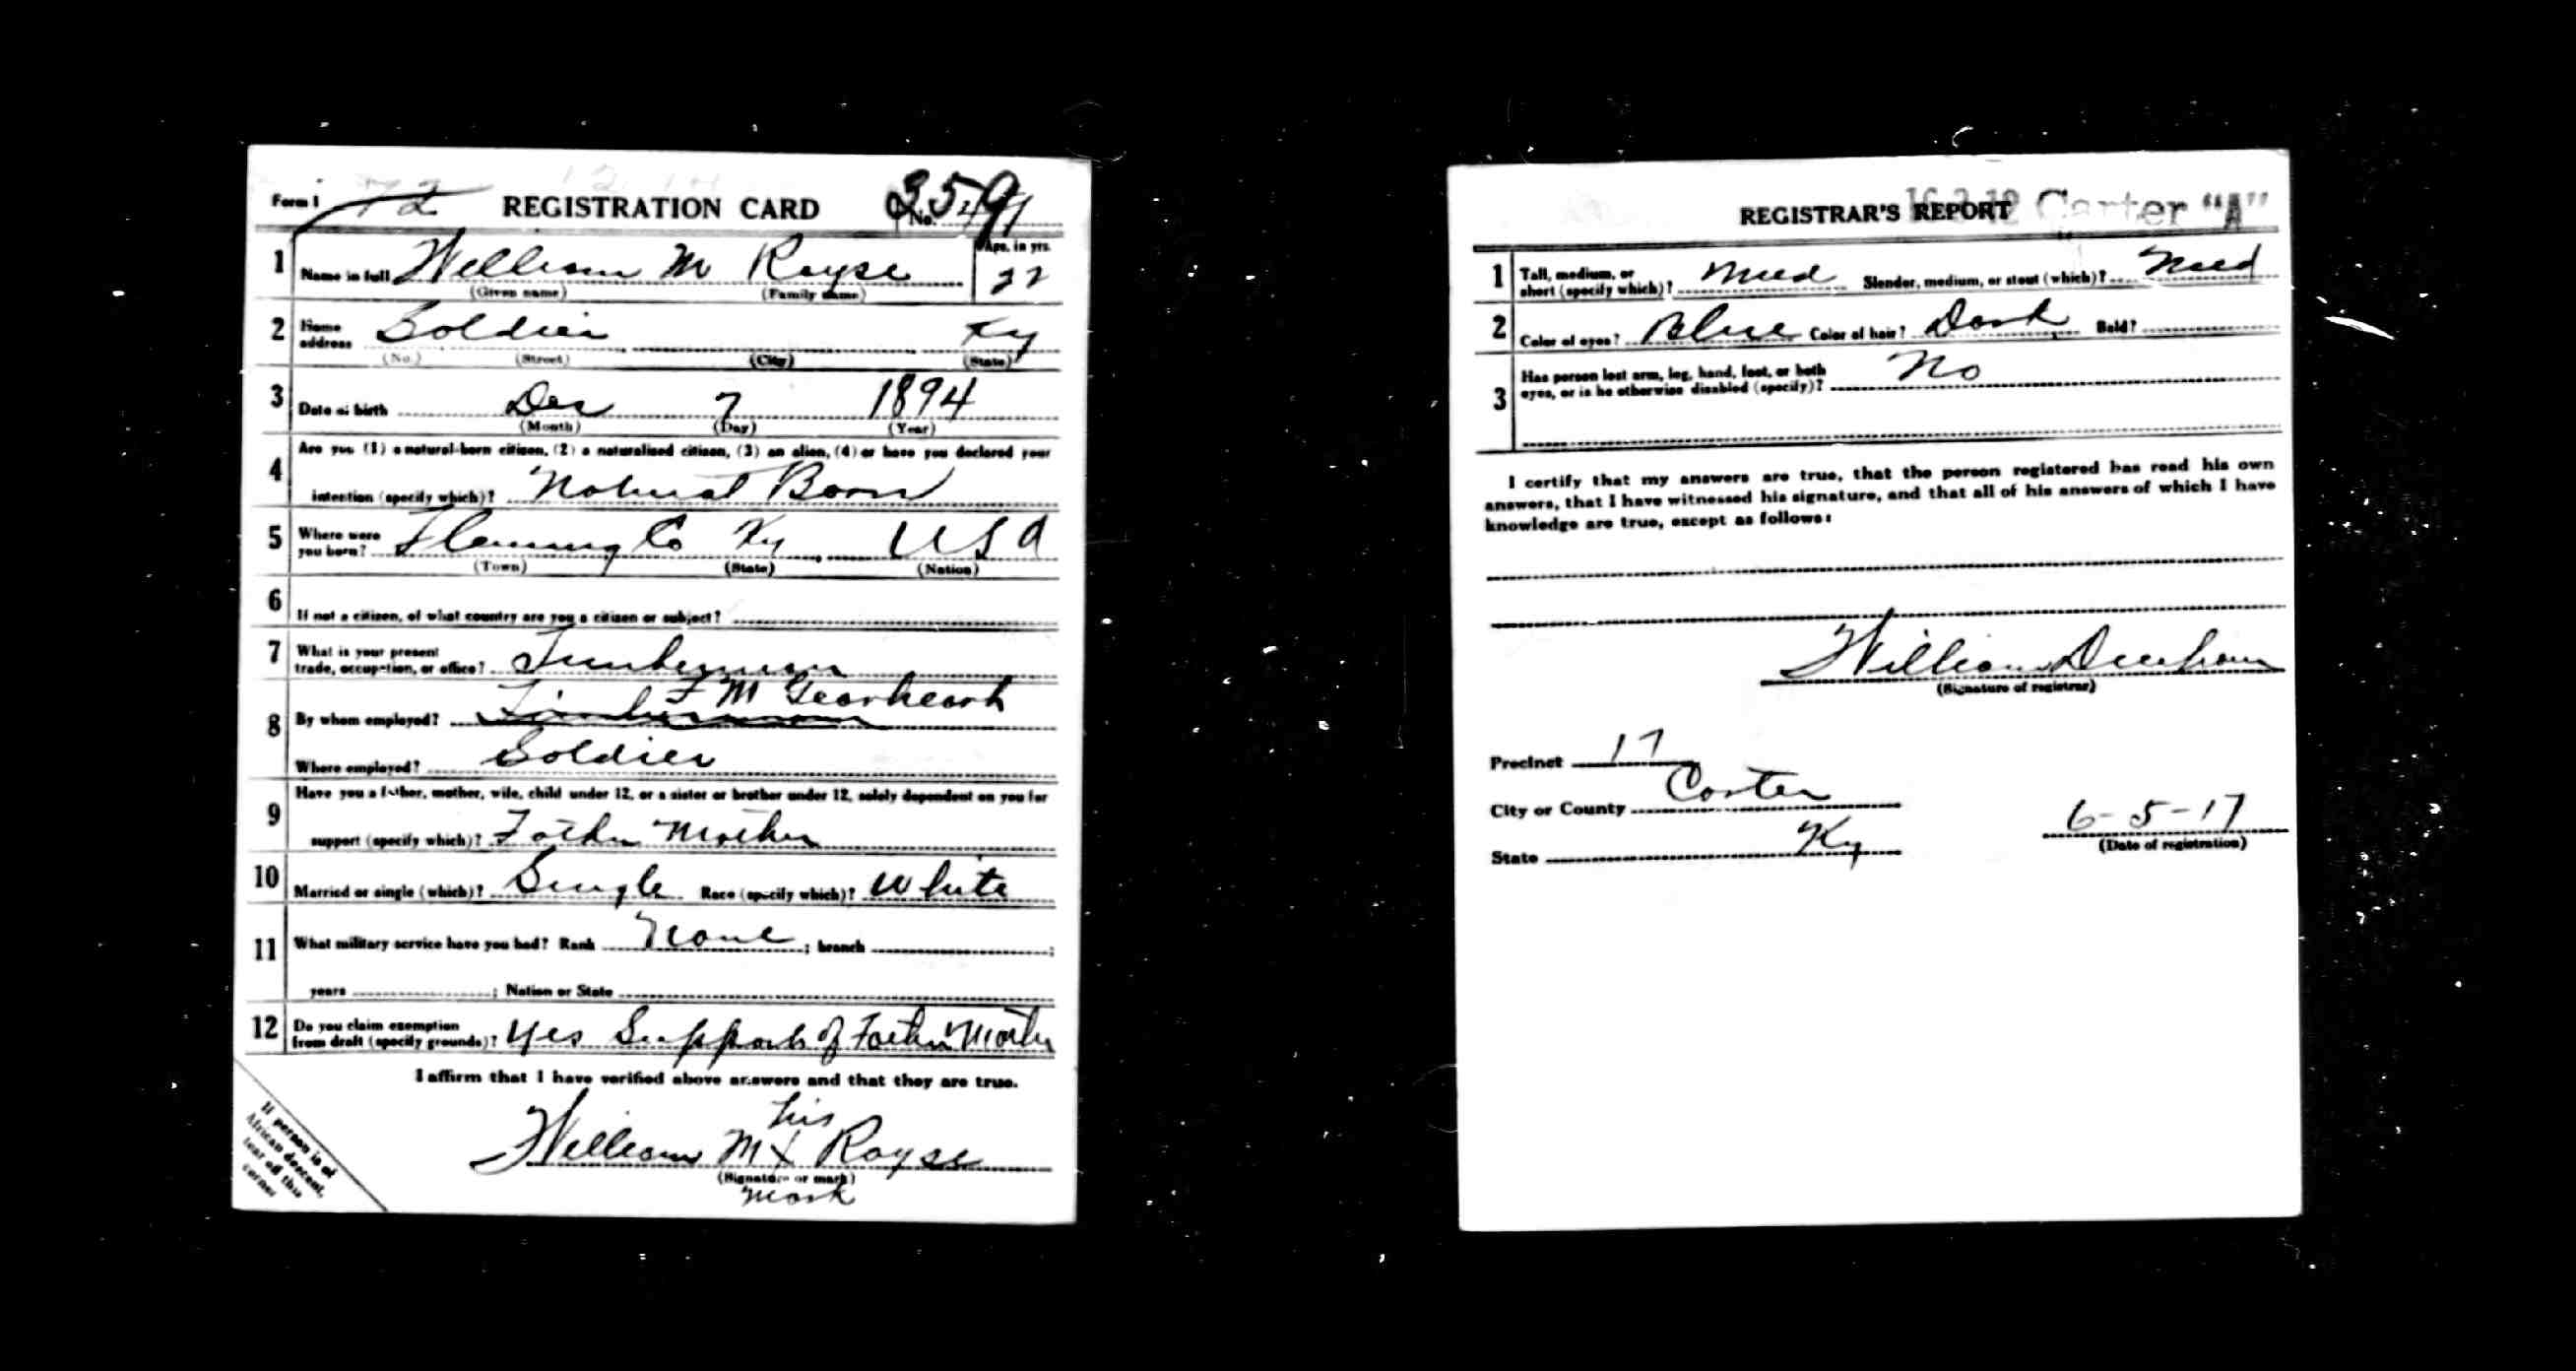 Form 1 72 REGISTRATION CARD No.
1 Name in full William M Royse Age, in yrs. 22
(Given name) (Family name)
2 Home address Soldier Ky
(No.) (Street) (City) (State)
3 Date of birth Dec 7 1894
(Month) (Day) (Year)
4 Are you (1) a natural-born citizen, (2) a naturalized citizen, (3) an alien, (4) or have you declared your
intention (specify which)? Natural Born
5 Where were you born? Fleming Co Ky USA
(Town) (State) (Nation)
6 If not a citizen, of what country are you a citizen or subject?
7 What is your present
trade, occupation, or office? Timberman
8 By whom employed? Timberman F M Gearheart
Where employed? Soldier
9 Have you a father, mother, wife, child under 12, or a sister or brother under 12, solely dependent on you for
support (specify which)? Father Mother
10 Married or single (which)? Single Race (specify which)? White
11 What military service have you had? Rank None ; branch ;
years ; Nation or State
12 Do you claim exemption
from draft (specify grounds)? Yes Support of Father Mother
I affirm that I have verified above answers and that they are true.
his
William M X Royse
(Signature or mark)
mark
If person is of
African descent,
tear off this
corner
REGISTRAR'S REPORT Carter "A"
1 Tall, medium, or
short (specify which)? Med Slender, medium, or stout (which)? Med
2 Color of eyes? Blue Color of hair? Dark Bald?
3 Has person lost arm, leg, hand, foot, or both
eyes, or is he otherwise disabled (specify)? No
I certify that my answers are true, that the person registered has read his own
answers, that I have witnessed his signature, and that all of his answers of which I have
knowledge are true, except as follows:
William
(Signature of registrar)
Precinct 17
City or County Carter
State Ky
6-5-17
(Date of registration)